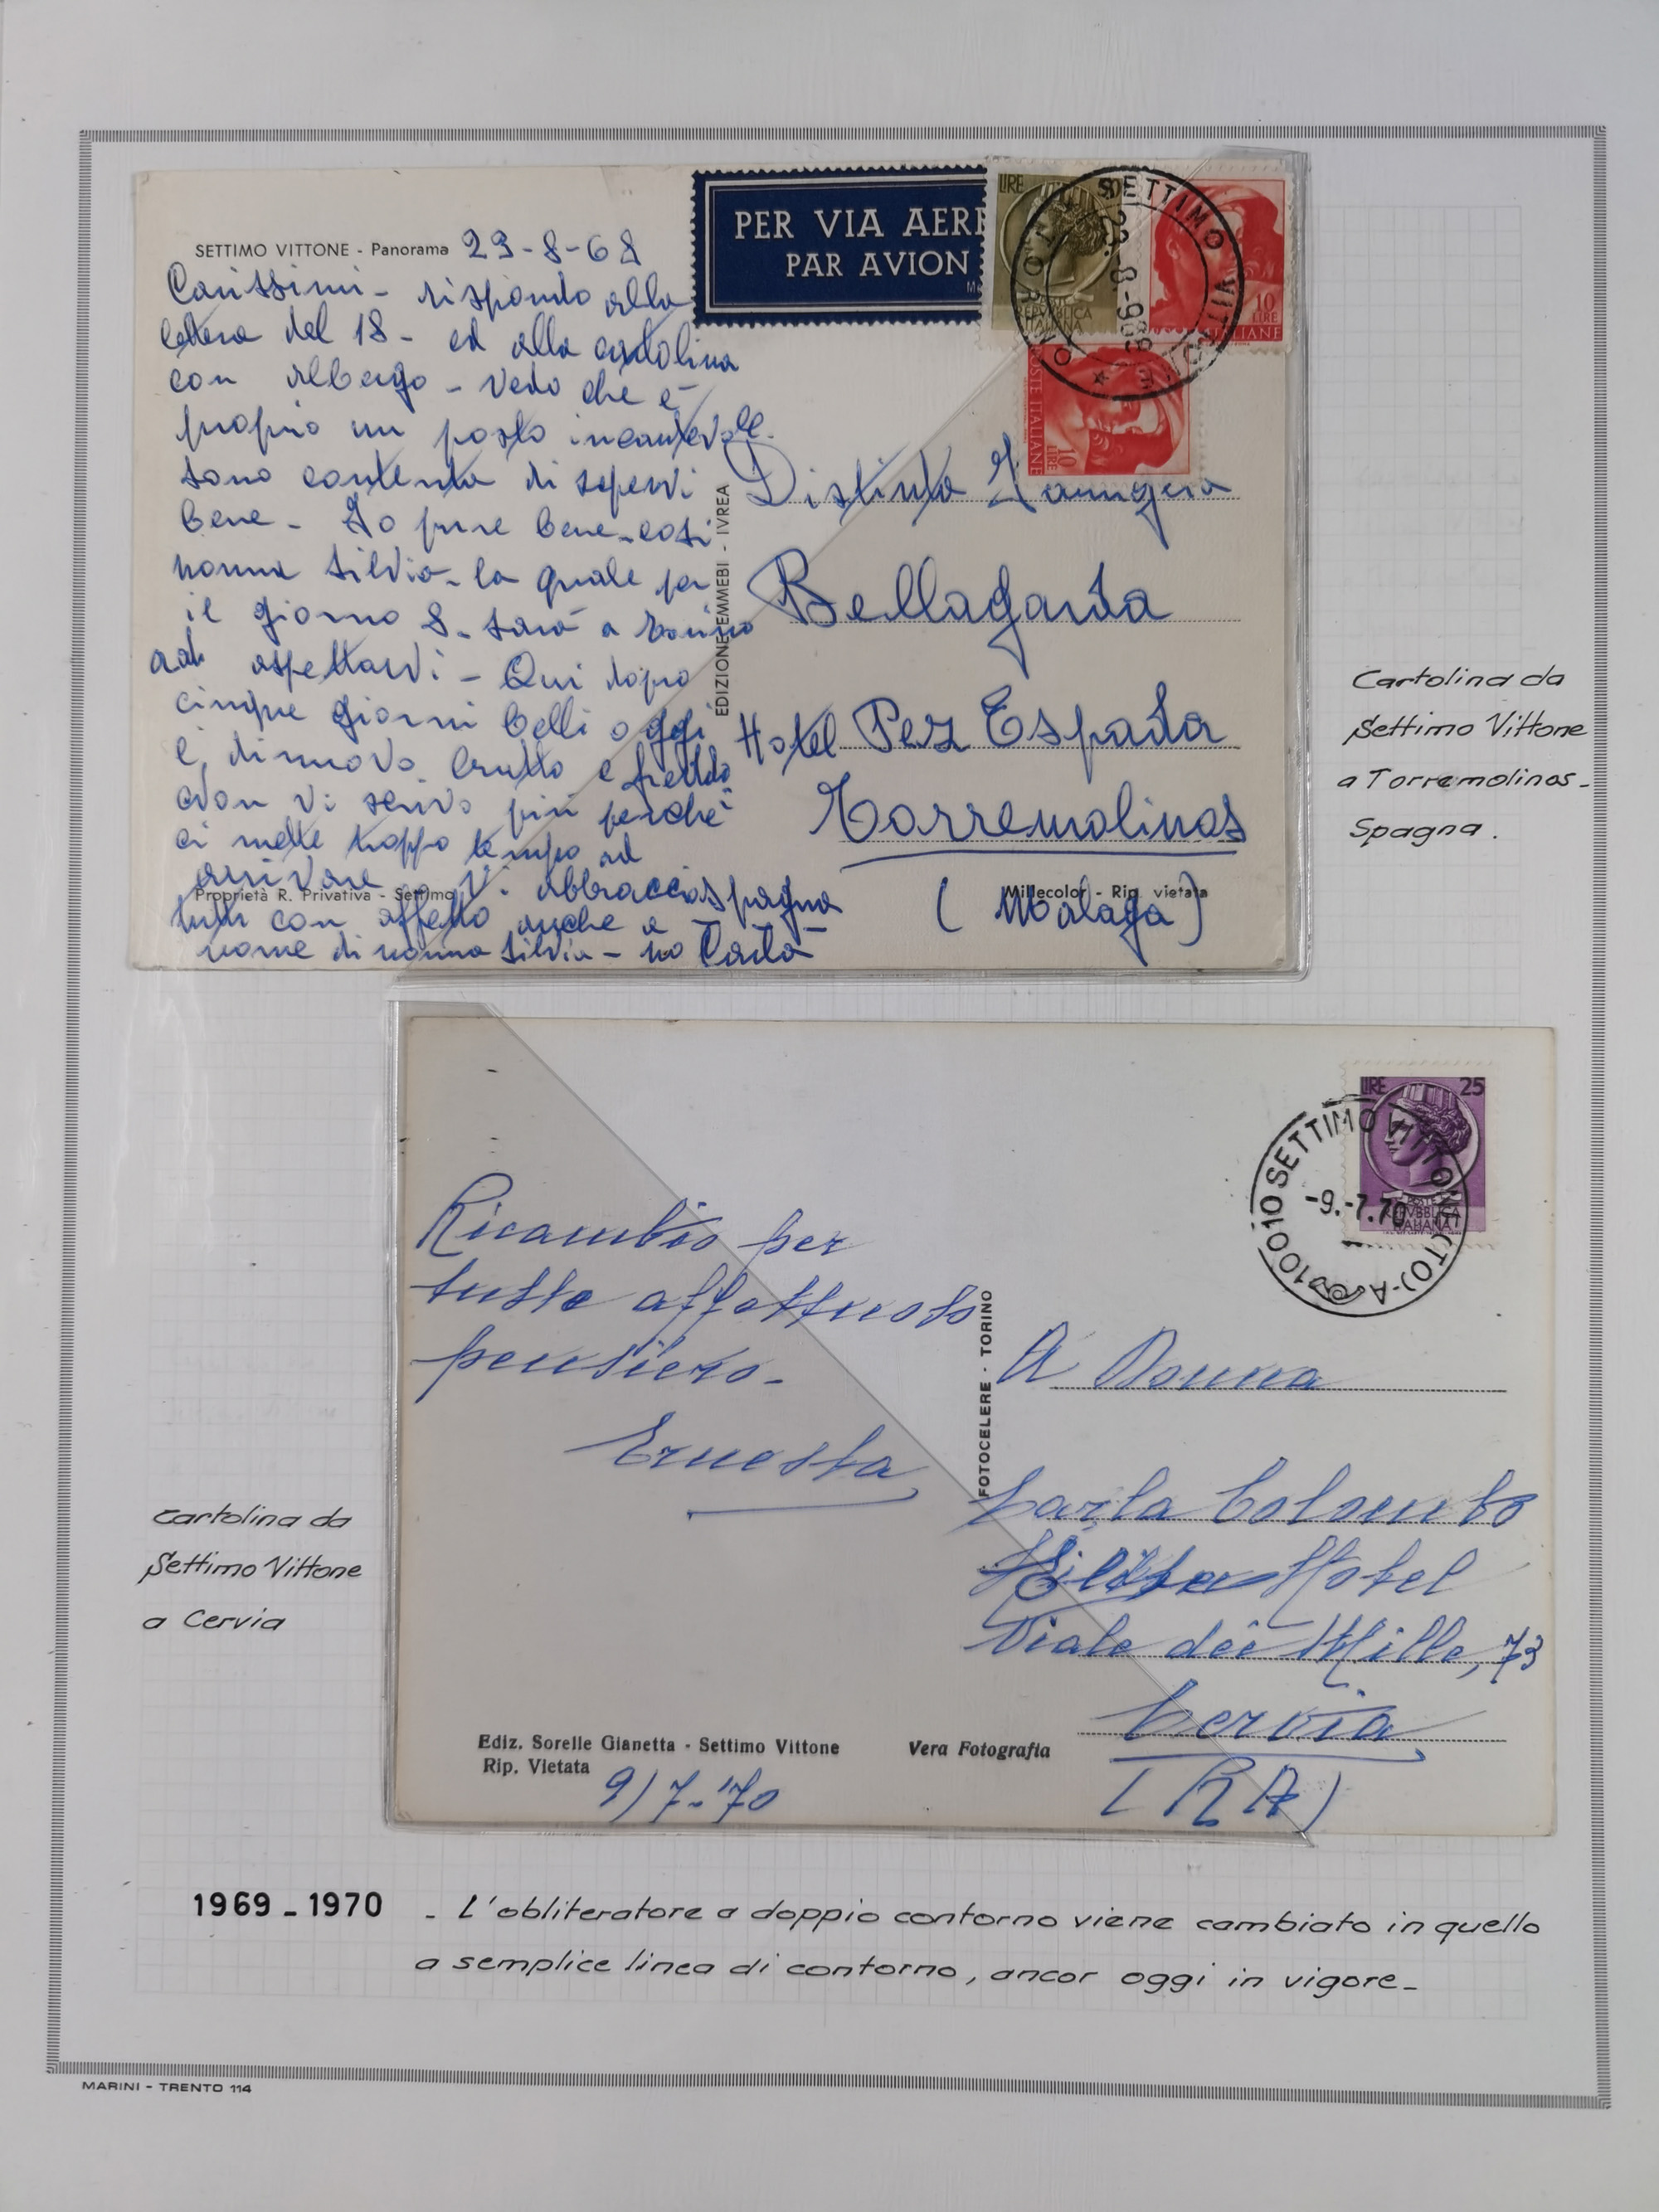 SETTIMO VITTONE - Panorama 23-8-68
Carissimi - rispondo alla
lettera del 18 - ed alla cartolina
con albergo - vedo che è
proprio un posto incantevole.
sono contenta di sapervi
bene - Io pure bene - così
nonna Silvia - la quale per
il giorno 8 - sarà a Torino
ad aspettarvi - Qui dopo
cinque giorni belli oggi
è di nuovo brutto e freddo
Non vi scrivo più perchè
ci mette troppo tempo ad
arrivare - Vi abbraccio
Proprietà R. Privativa - Settimo
tutti con affetto anche a
nome di nonna Silvia - Carla
EDIZIONE EMMEBI - IVREA
PER VIA AER
PAR AVION
LIRE
POSTE
REPVBBLICA
ITALIANA
10
LIRE
10
LIRE
POSTE ITALIANE
SETTIMO VITTONE
TORINO
23.-8-968
Distinta Famiglia
Bellagarda
Hotel Pez Espada
Torremolinos
spagna
(Malaga)
Millecolor - Rip. vietata
Cartolina da
Settimo Vittone
a Torremolinos -
Spagna.
LIRE 25
POSTE
REPVBBLICA
ITALIANA
10010 SETTIMO VITTONE (TO)-A
-9.-7.70
Ricambio per
tutte affettuoso
pensiero -
Ernesta
FOTOCELERE - TORINO
A Donna
Carla Colombo
Hotel
Viale dei Mille, 73
Cervia
(RA)
Ediz. Sorelle Gianetta - Settimo Vittone
Rip. Vietata
Vera Fotografia
9/7-'70
Cartolina da
Settimo Vittone
a Cervia
1969 - 1970 - L'obliteratore a doppio contorno viene cambiato in quello
a semplice linea di contorno, ancor oggi in vigore -
MARINI - TRENTO 114